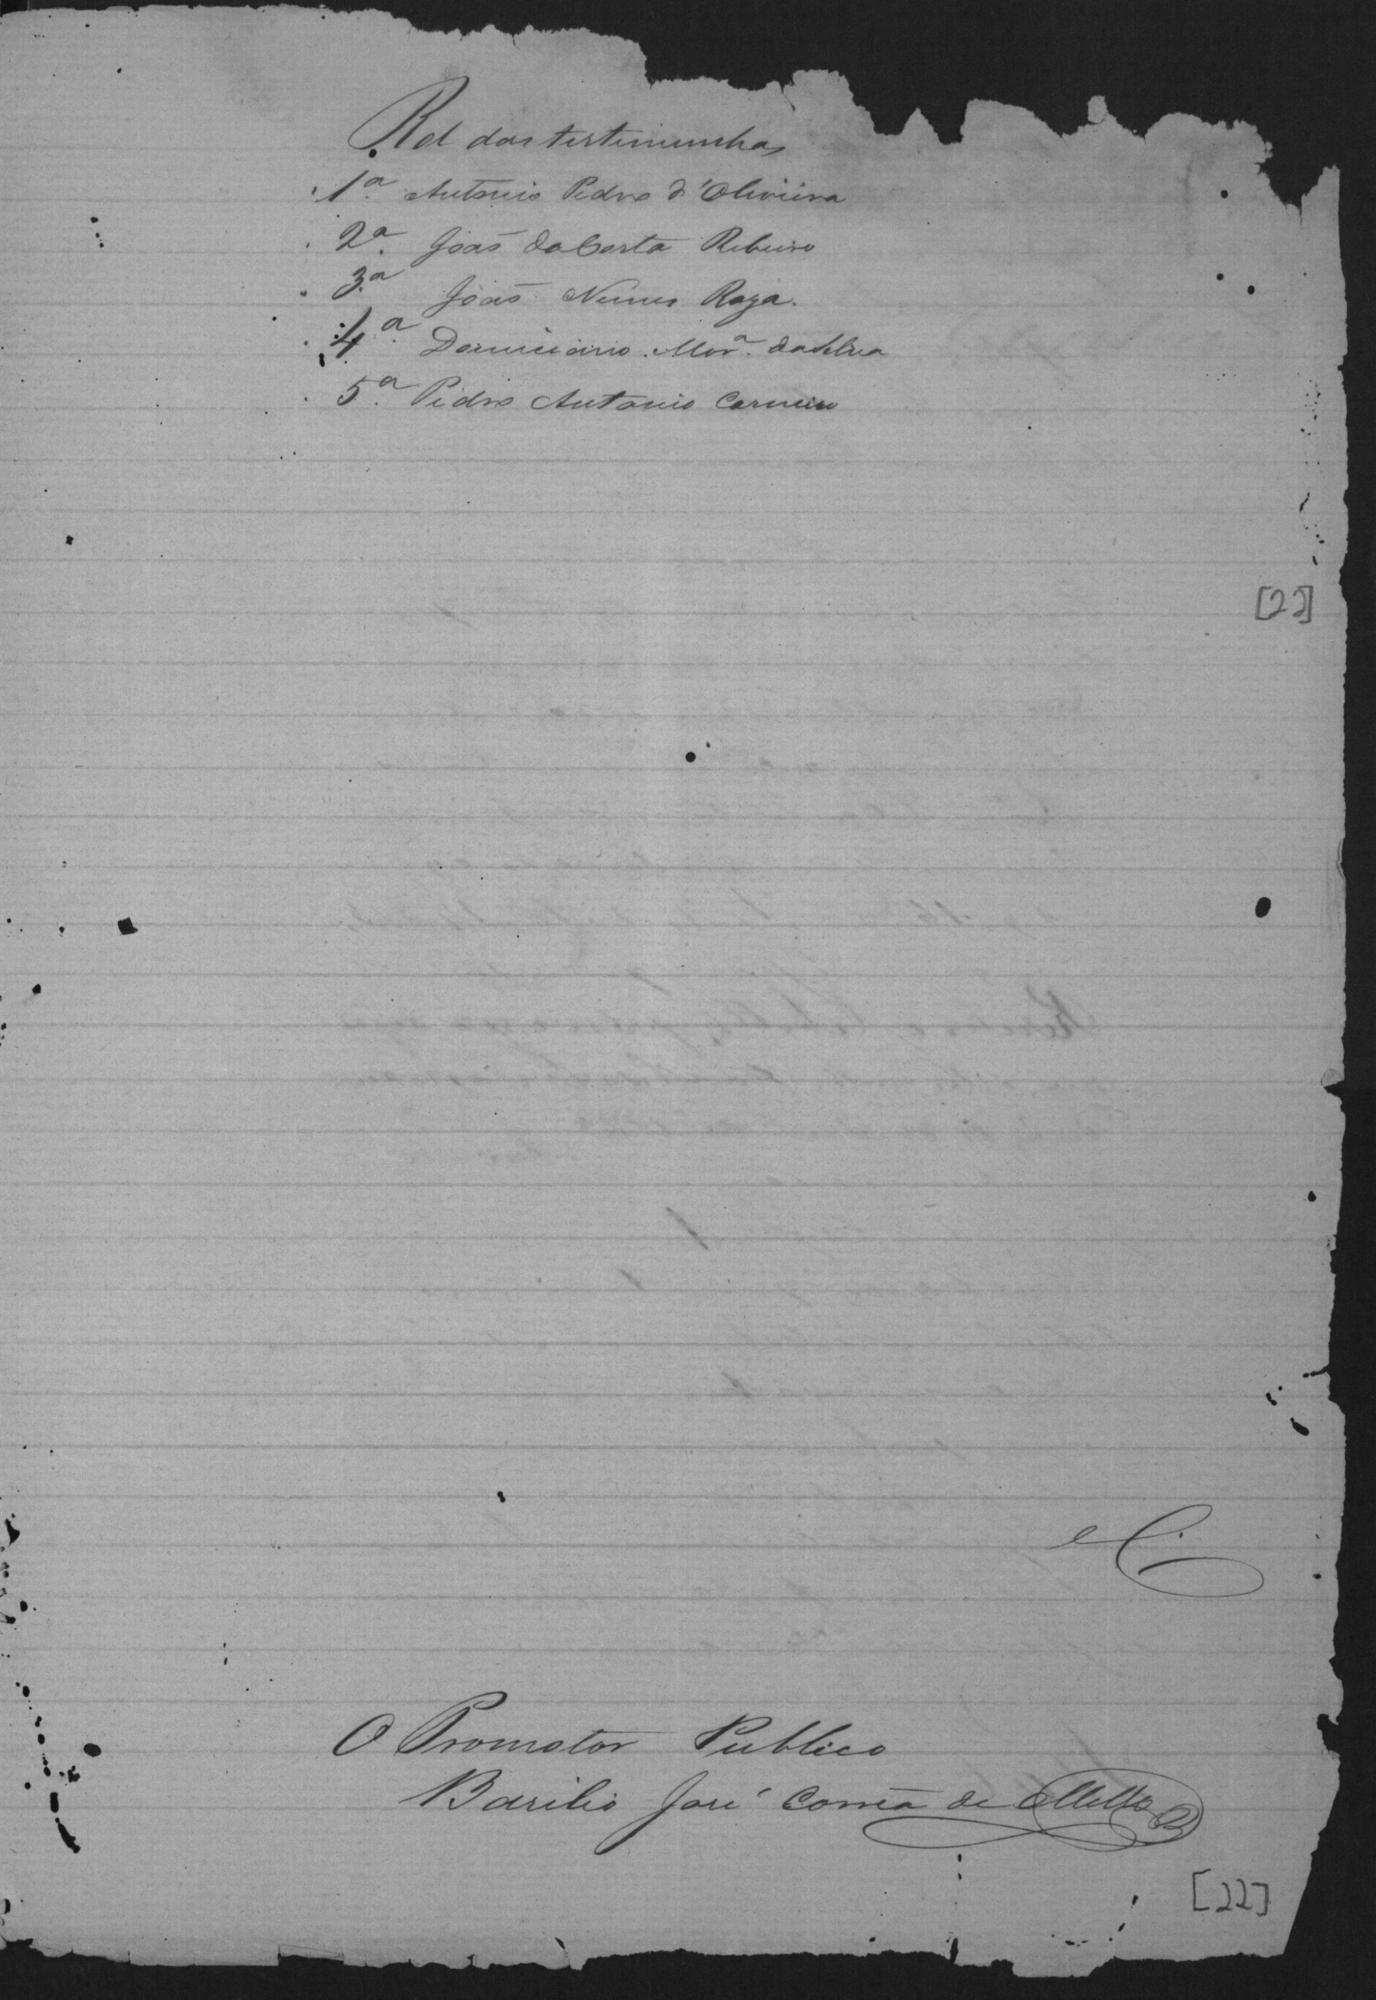 Rol das testemunhas
1ª Antonio Pedro d'Oliveira
2ª João da Costa Ribeiro
3ª João Nunes Raza.
4ª Domiciano Morª. da Silva
5ª Pedro Antonio Carneiro
[22]
O Promotor Publico
Basilio José Corrêa de Mello
[22]